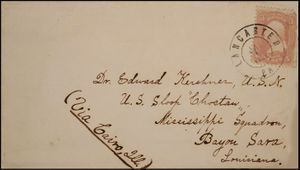 LANCASTER
PA.
Dr. Edward Kershner, U.S.N.
U.S. Sloop "Choctaw"
Mississippi Squadron,
Bayou Sara,
Louisiana.
(Via Cairo, Ill.)